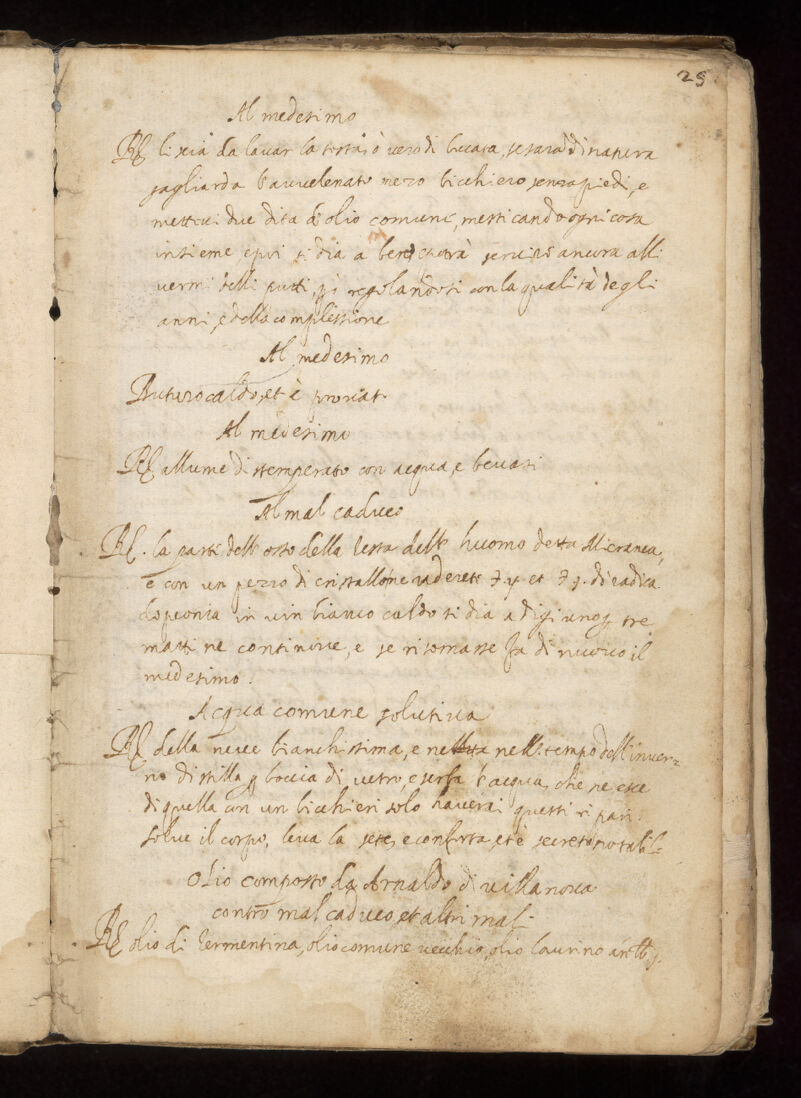 25
Al medesimo
℞ lixia da lavar la testa, ò vero di bucata, se sarà di natura
gagliarda l'avvelenato mezo bicchiero senza piedi, e
mettivi due dita di olio comune, mesticando ogni cosa
insieme, e poi si dia a bere servire ancora alli
vermi delli putti, regolandosi con la qualità degli
anni, e della complessione
Al medesimo
Buturo caldo, et è provat.
Al medesimo
℞ allume distemperato con acqua, e bevasi
Al mal caduco
℞. la parte dell'osso della testa dell' huomo detta
e con un pezzo di cristallo ne raderete et di radica
di peonia in vin bianco caldo si dia a digiuno tre
matti ne continove, e se ritornasse fa di nuovo il
medesimo.
Acqua comune solutiva
℞ della neve bianchissima, e nell tempo dell'inver=
no distilla boccia di vetro, e serba l'acqua, che ne esce
di quella con un bicchieri solo haverai questi
solve il corpo, leva la sete, e conforta, et è secreto notabil=
Olio composto da Arnaldo di villanova
contro mal caduco, et altri mali
℞ olio di termentina, olio comune vecchio, olio laurino